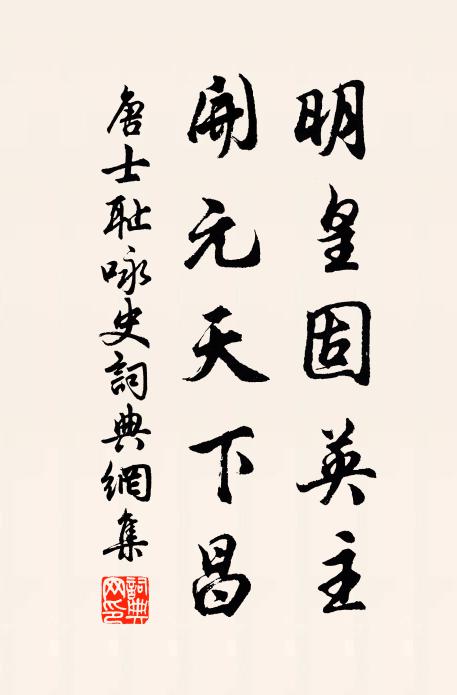 明皇固英主
開元天下昌
唐士耻咏史詞典網集
詞典網印